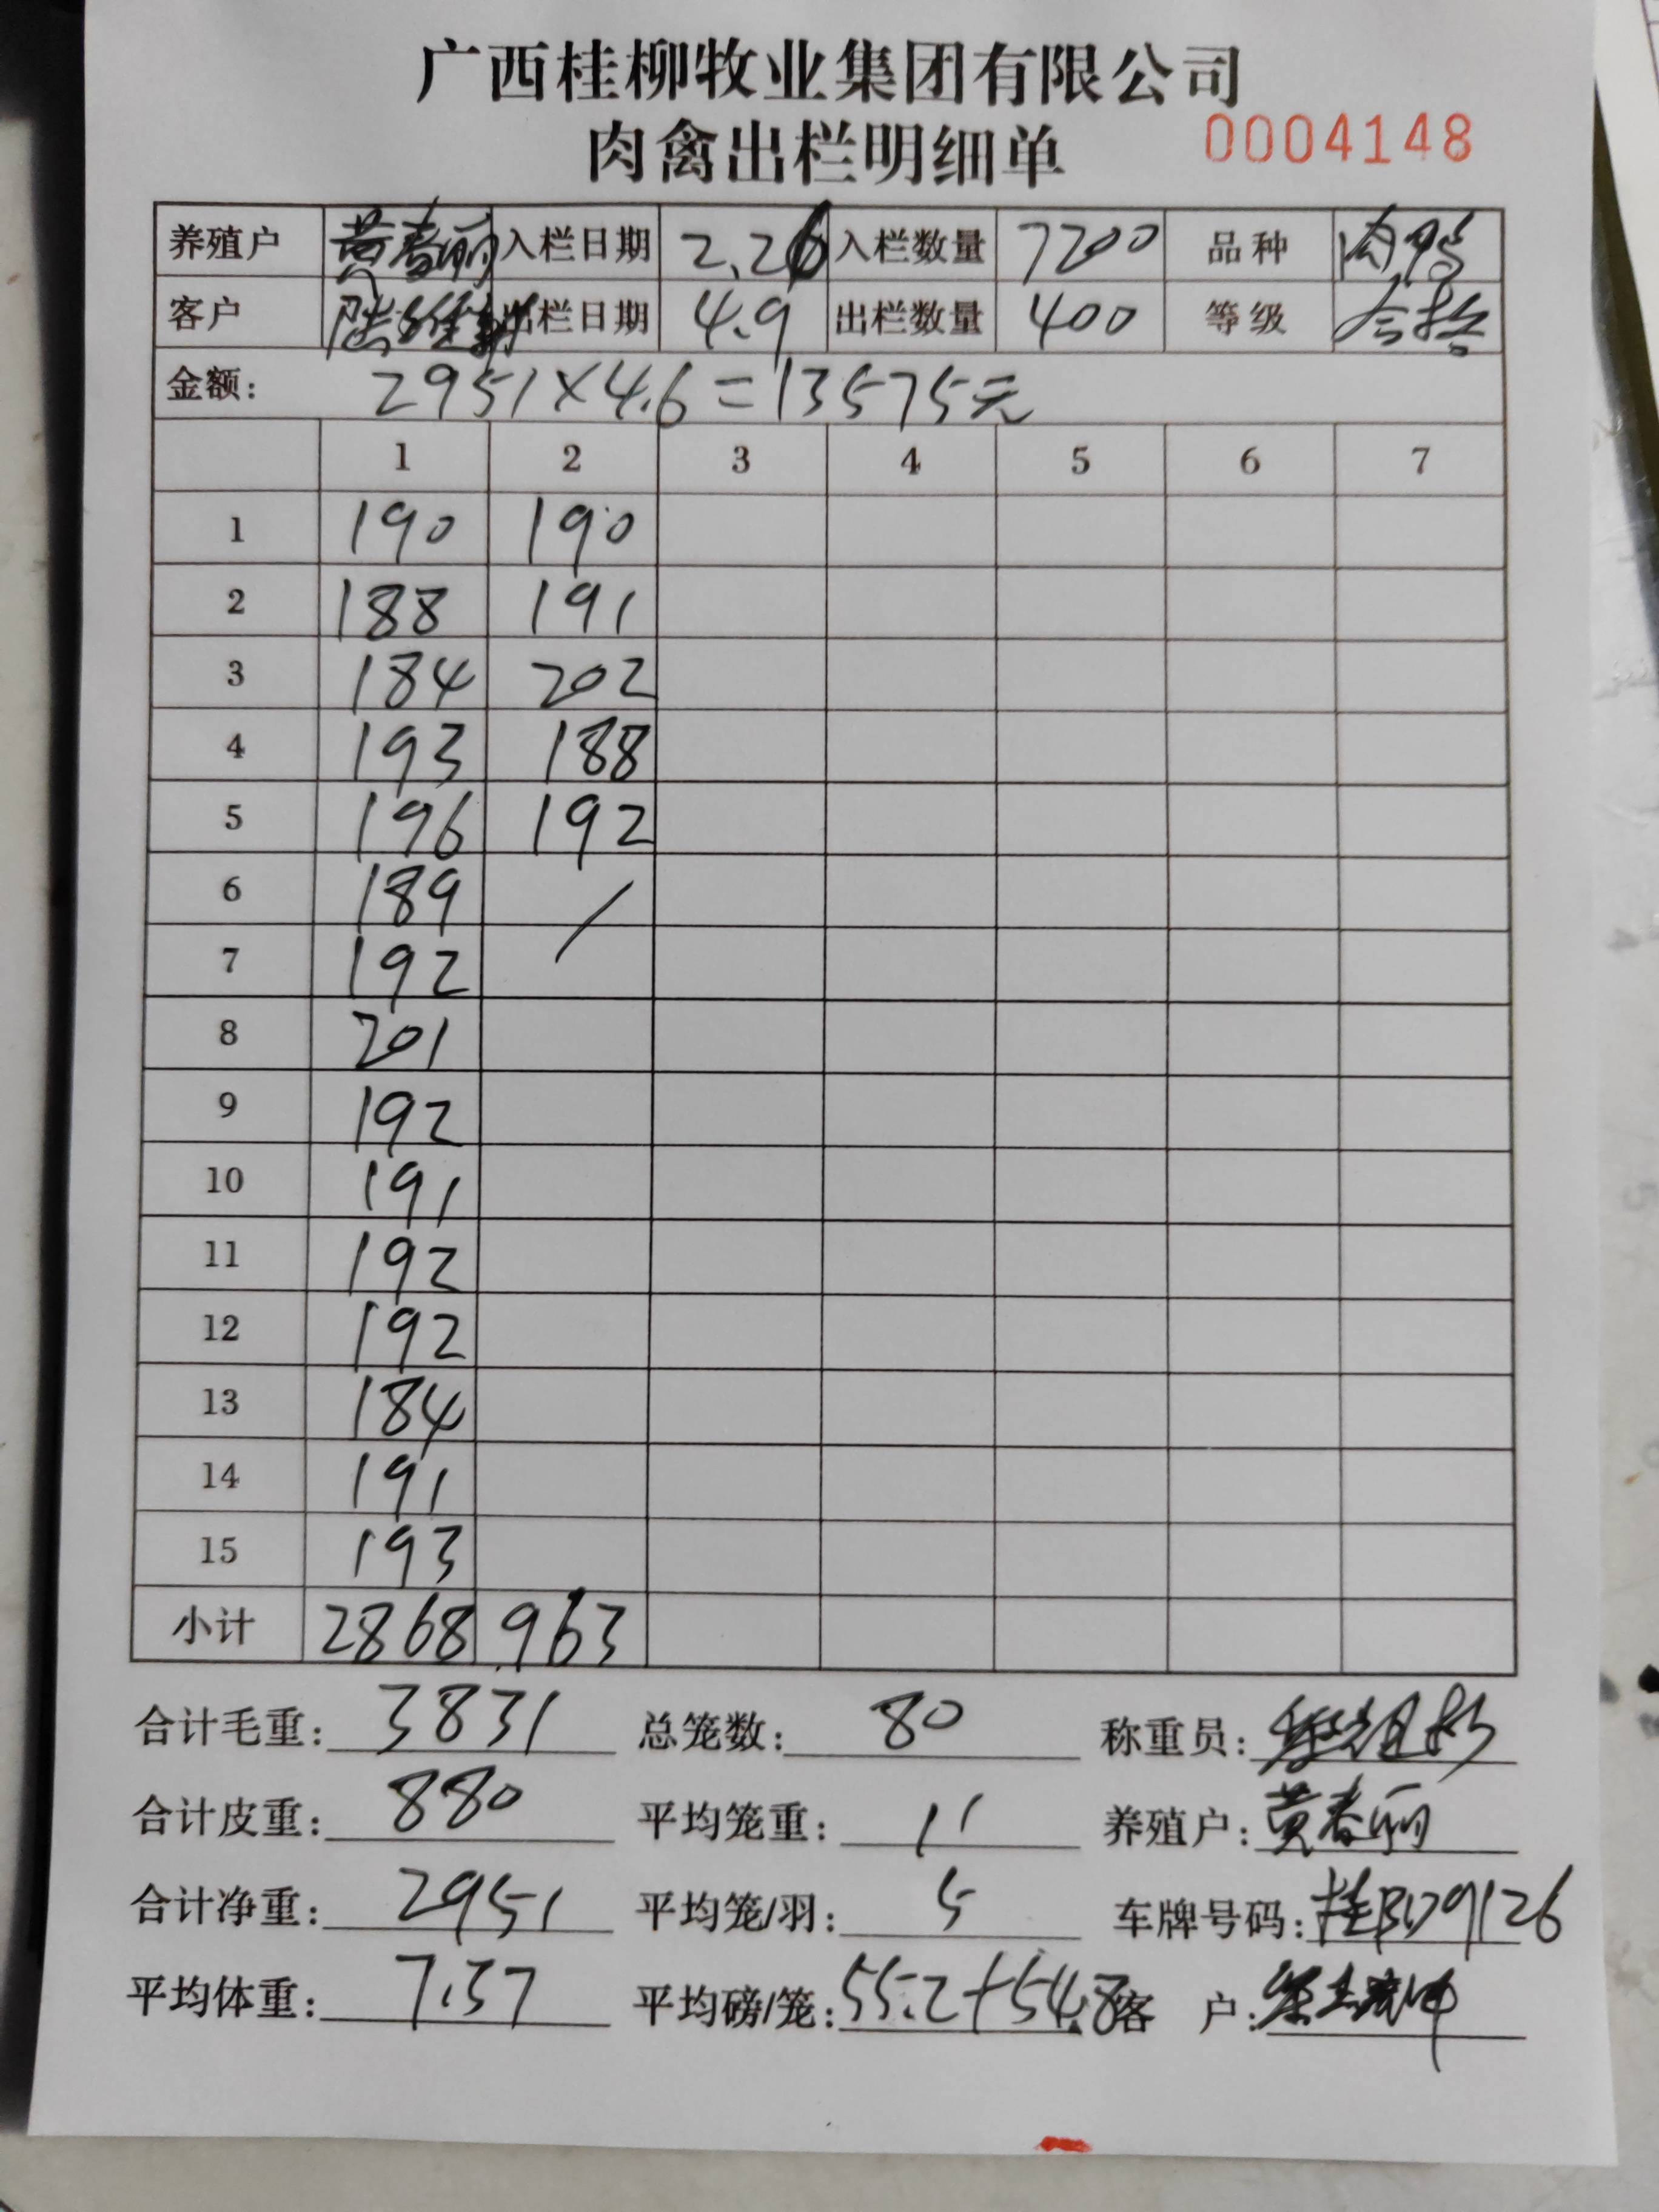 广西桂柳牧业集团有限公司
肉禽出栏明细单 0004148
养殖户 黄春丽 入栏日期 2.26 入栏数量 7200 品种 肉鸭
客户 出栏日期 4.9 出栏数量 400 等级 合格
金额: 2951×4.6=13575元
1 2 3 4 5 6 7
1 190 190
2 188 191
3 184 202
4 193 188
5 196 192
6 189 /
7 192
8 201
9 192
10 191
11 192
12 192
13 184
14 191
15 193
小计 2868 963
合计毛重: 3831 总笼数: 80 称重员:
合计皮重: 880 平均笼重: 11 养殖户: 黄春丽
合计净重: 2951 平均笼/羽: 5 车牌号码:
平均体重: 7.37 平均磅/笼: 55.2+54.8 客户: